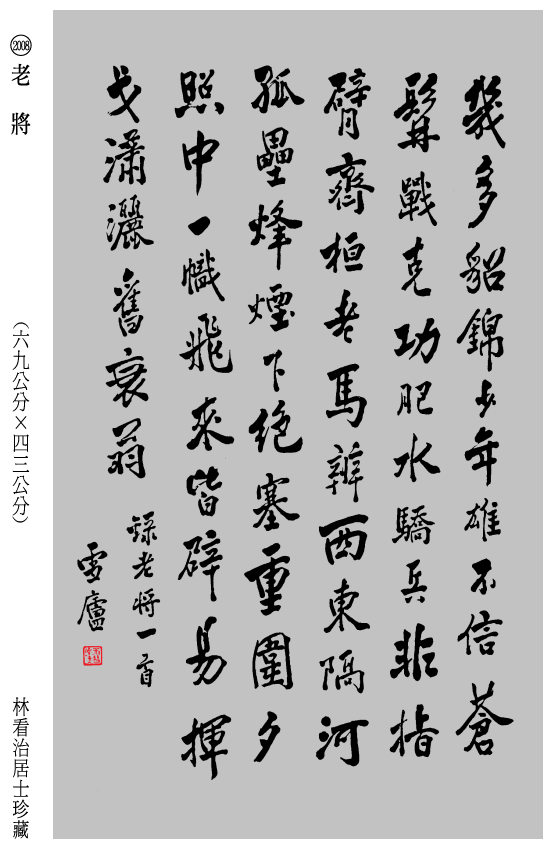 幾多貂錦少年雄不信蒼
髯戰克功肥水驕兵非指
臂齊桓老馬辨西東隔河
孤壘烽煙下絕塞重圍夕
照中一幟飛來皆辟易揮
戈瀟灑舊衰翁
錄老將一首
雪廬
2008 老將
(六九公分×四三公分)
林看治居士珍藏